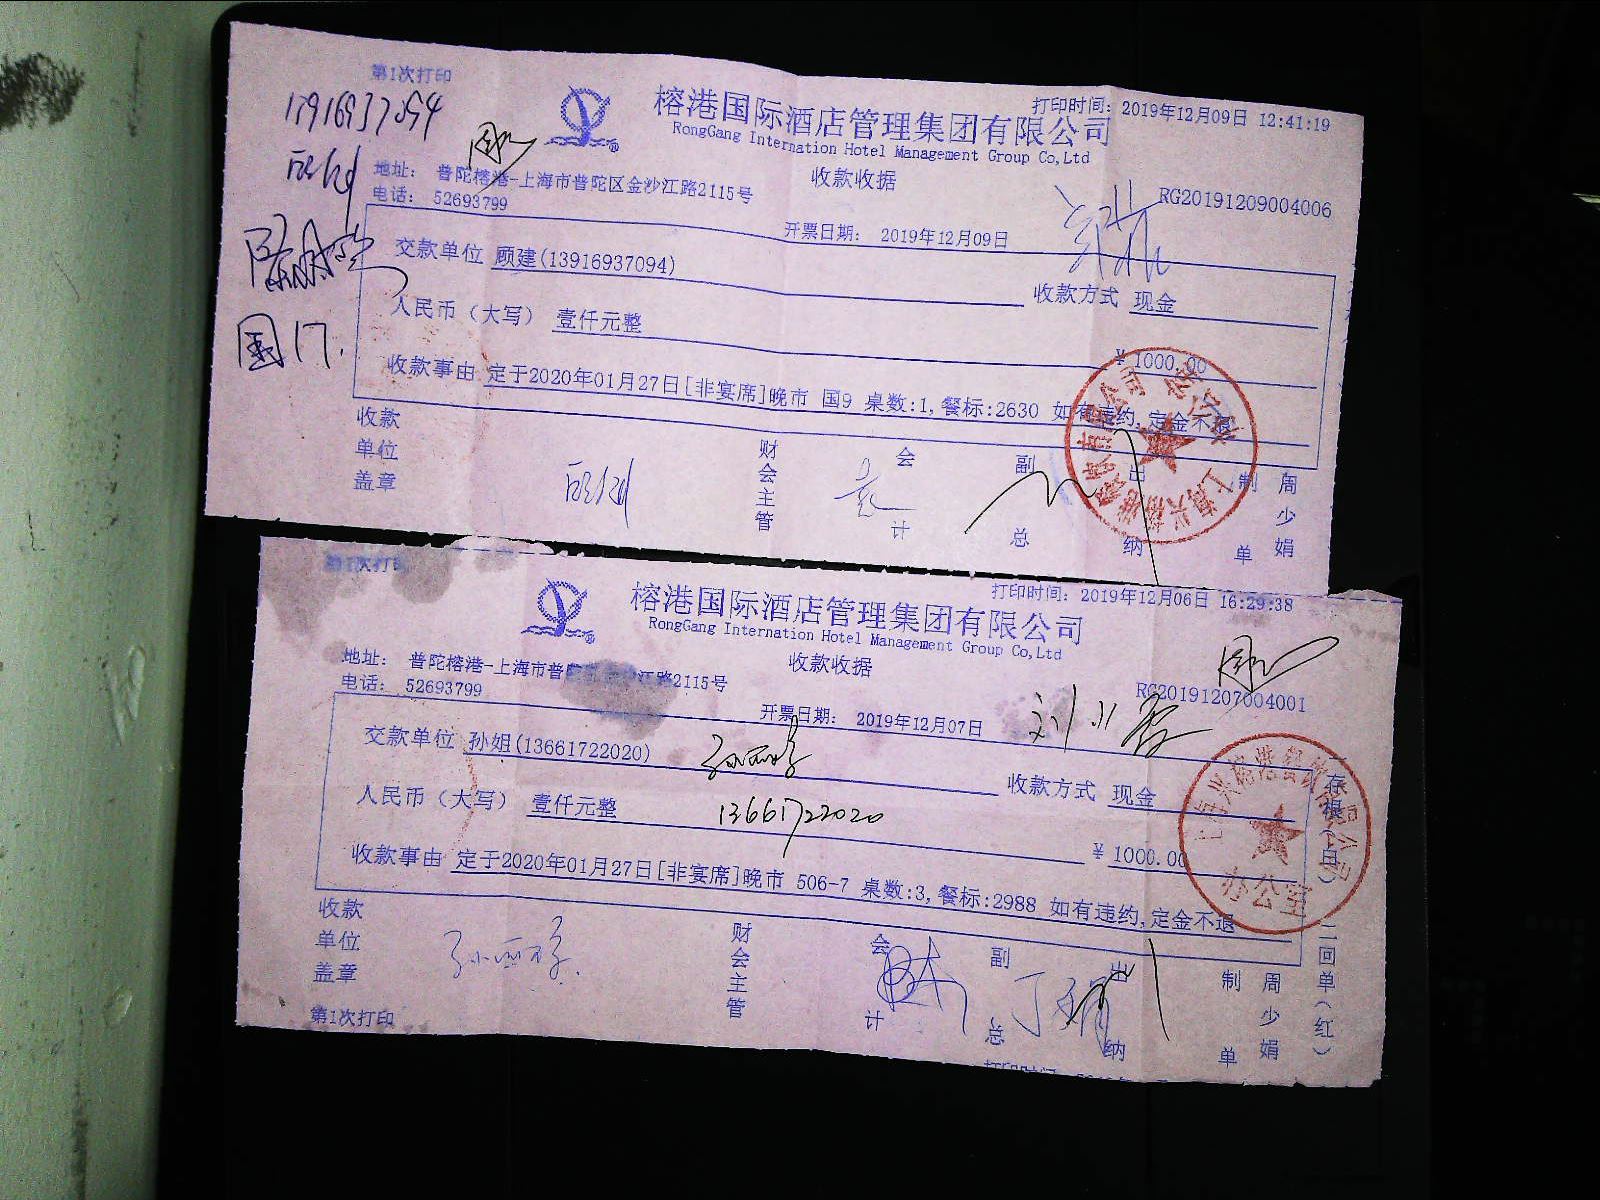 第1次打印
打印时间：2019年12月09日 12:41:19
榕港国际酒店管理集团有限公司
RongGang Internation Hotel Management Group Co,Ltd
地址： 普陀榕港-上海市普陀区金沙江路2115号
收款收据
RG20191209004006
电话： 52693799
开票日期： 2019年12月09日
交款单位 顾建(13916937094)
收款方式 现金
人民币（大写） 壹仟元整
¥ 1000.00
国17.
收款事由 定于2020年01月27日[非宴席]晚市 国9 桌数:1,餐标:2630 如有违约,定金不退
收款单位盖章
财会主管
会计
副总
出纳
制单
周少娟
第1次打印
打印时间：2019年12月06日 16:29:38
榕港国际酒店管理集团有限公司
RongGang Internation Hotel Management Group Co,Ltd
地址： 普陀榕港-上海市普陀区金沙江路2115号
收款收据
RG20191207004001
电话： 52693799
开票日期： 2019年12月07日
交款单位 孙姐(13661722020)
收款方式 现金
人民币（大写） 壹仟元整
13661722020
¥ 1000.00
收款事由 定于2020年01月27日[非宴席]晚市 506-7 桌数:3,餐标:2988 如有违约,定金不退
办公室
收款单位盖章
财会主管
会计
副总
出纳
制单
周少娟
存根(白)
二回单(红)
第1次打印